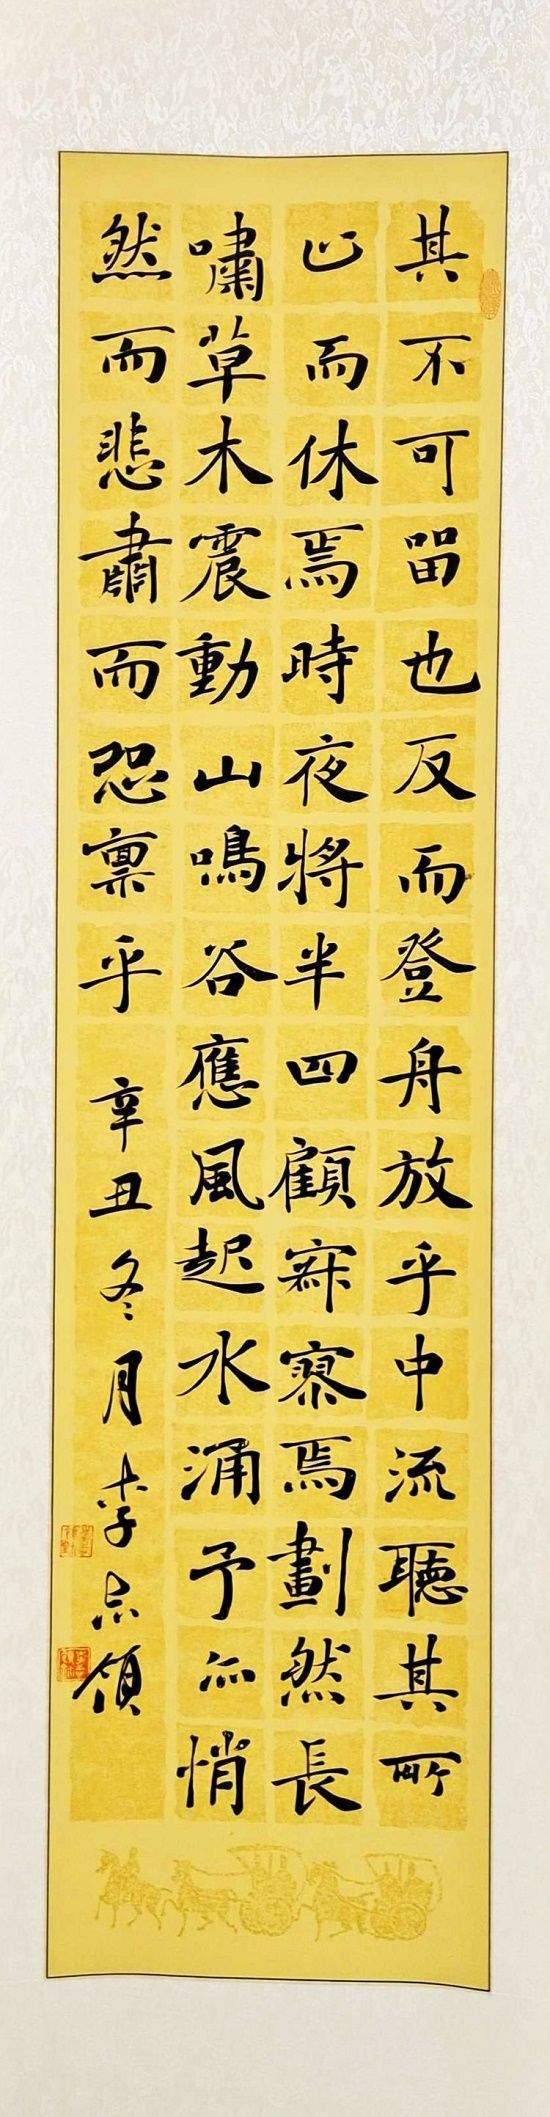 其不可留也反而登舟放乎中流聽其所
止而休焉時夜將半四顧寂寥焉劃然長
嘯草木震動山鳴谷應風起水涌予亦悄
然而悲肅而恐稟乎 辛丑冬月李領